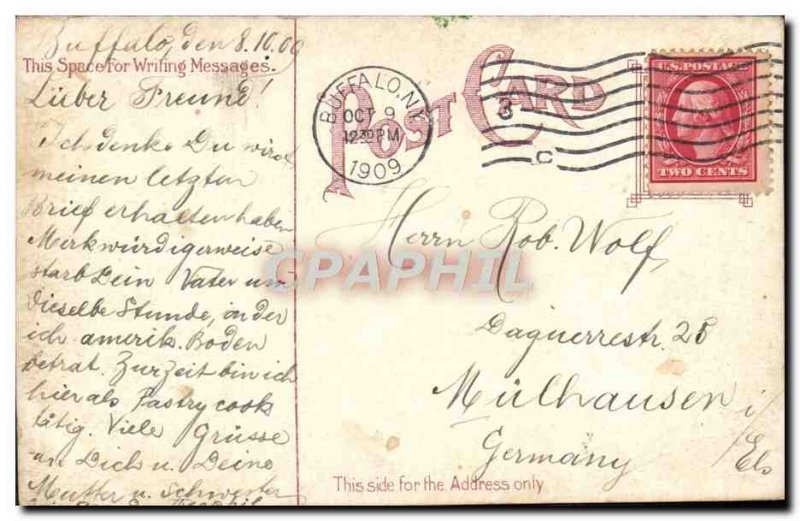 Buffalo, den 8.10.09
This Space For Writing Messages.
Lieber Freund!
Ich denke Du wirst
meinen letzten
Brief erhalten haben
Merkwürdigerweise
starb Dein Vater um
dieselbe Stunde, in der
ich amerik. Boden
betrat. Zurzeit bin ich
hier als Pastry cook
tätig. Viele Grüsse
an Dich u. Deine
Mutter u. Schwester
POST CARD
BUFFALO, N.Y.
OCT 9
12 30 PM
1909
3
C
U.S. POSTAGE
TWO CENTS
Herrn Rob. Wolf
Daguerrestr. 25
Mülhausen i/
Germany Els
This side for the Address only
CPAPHIL